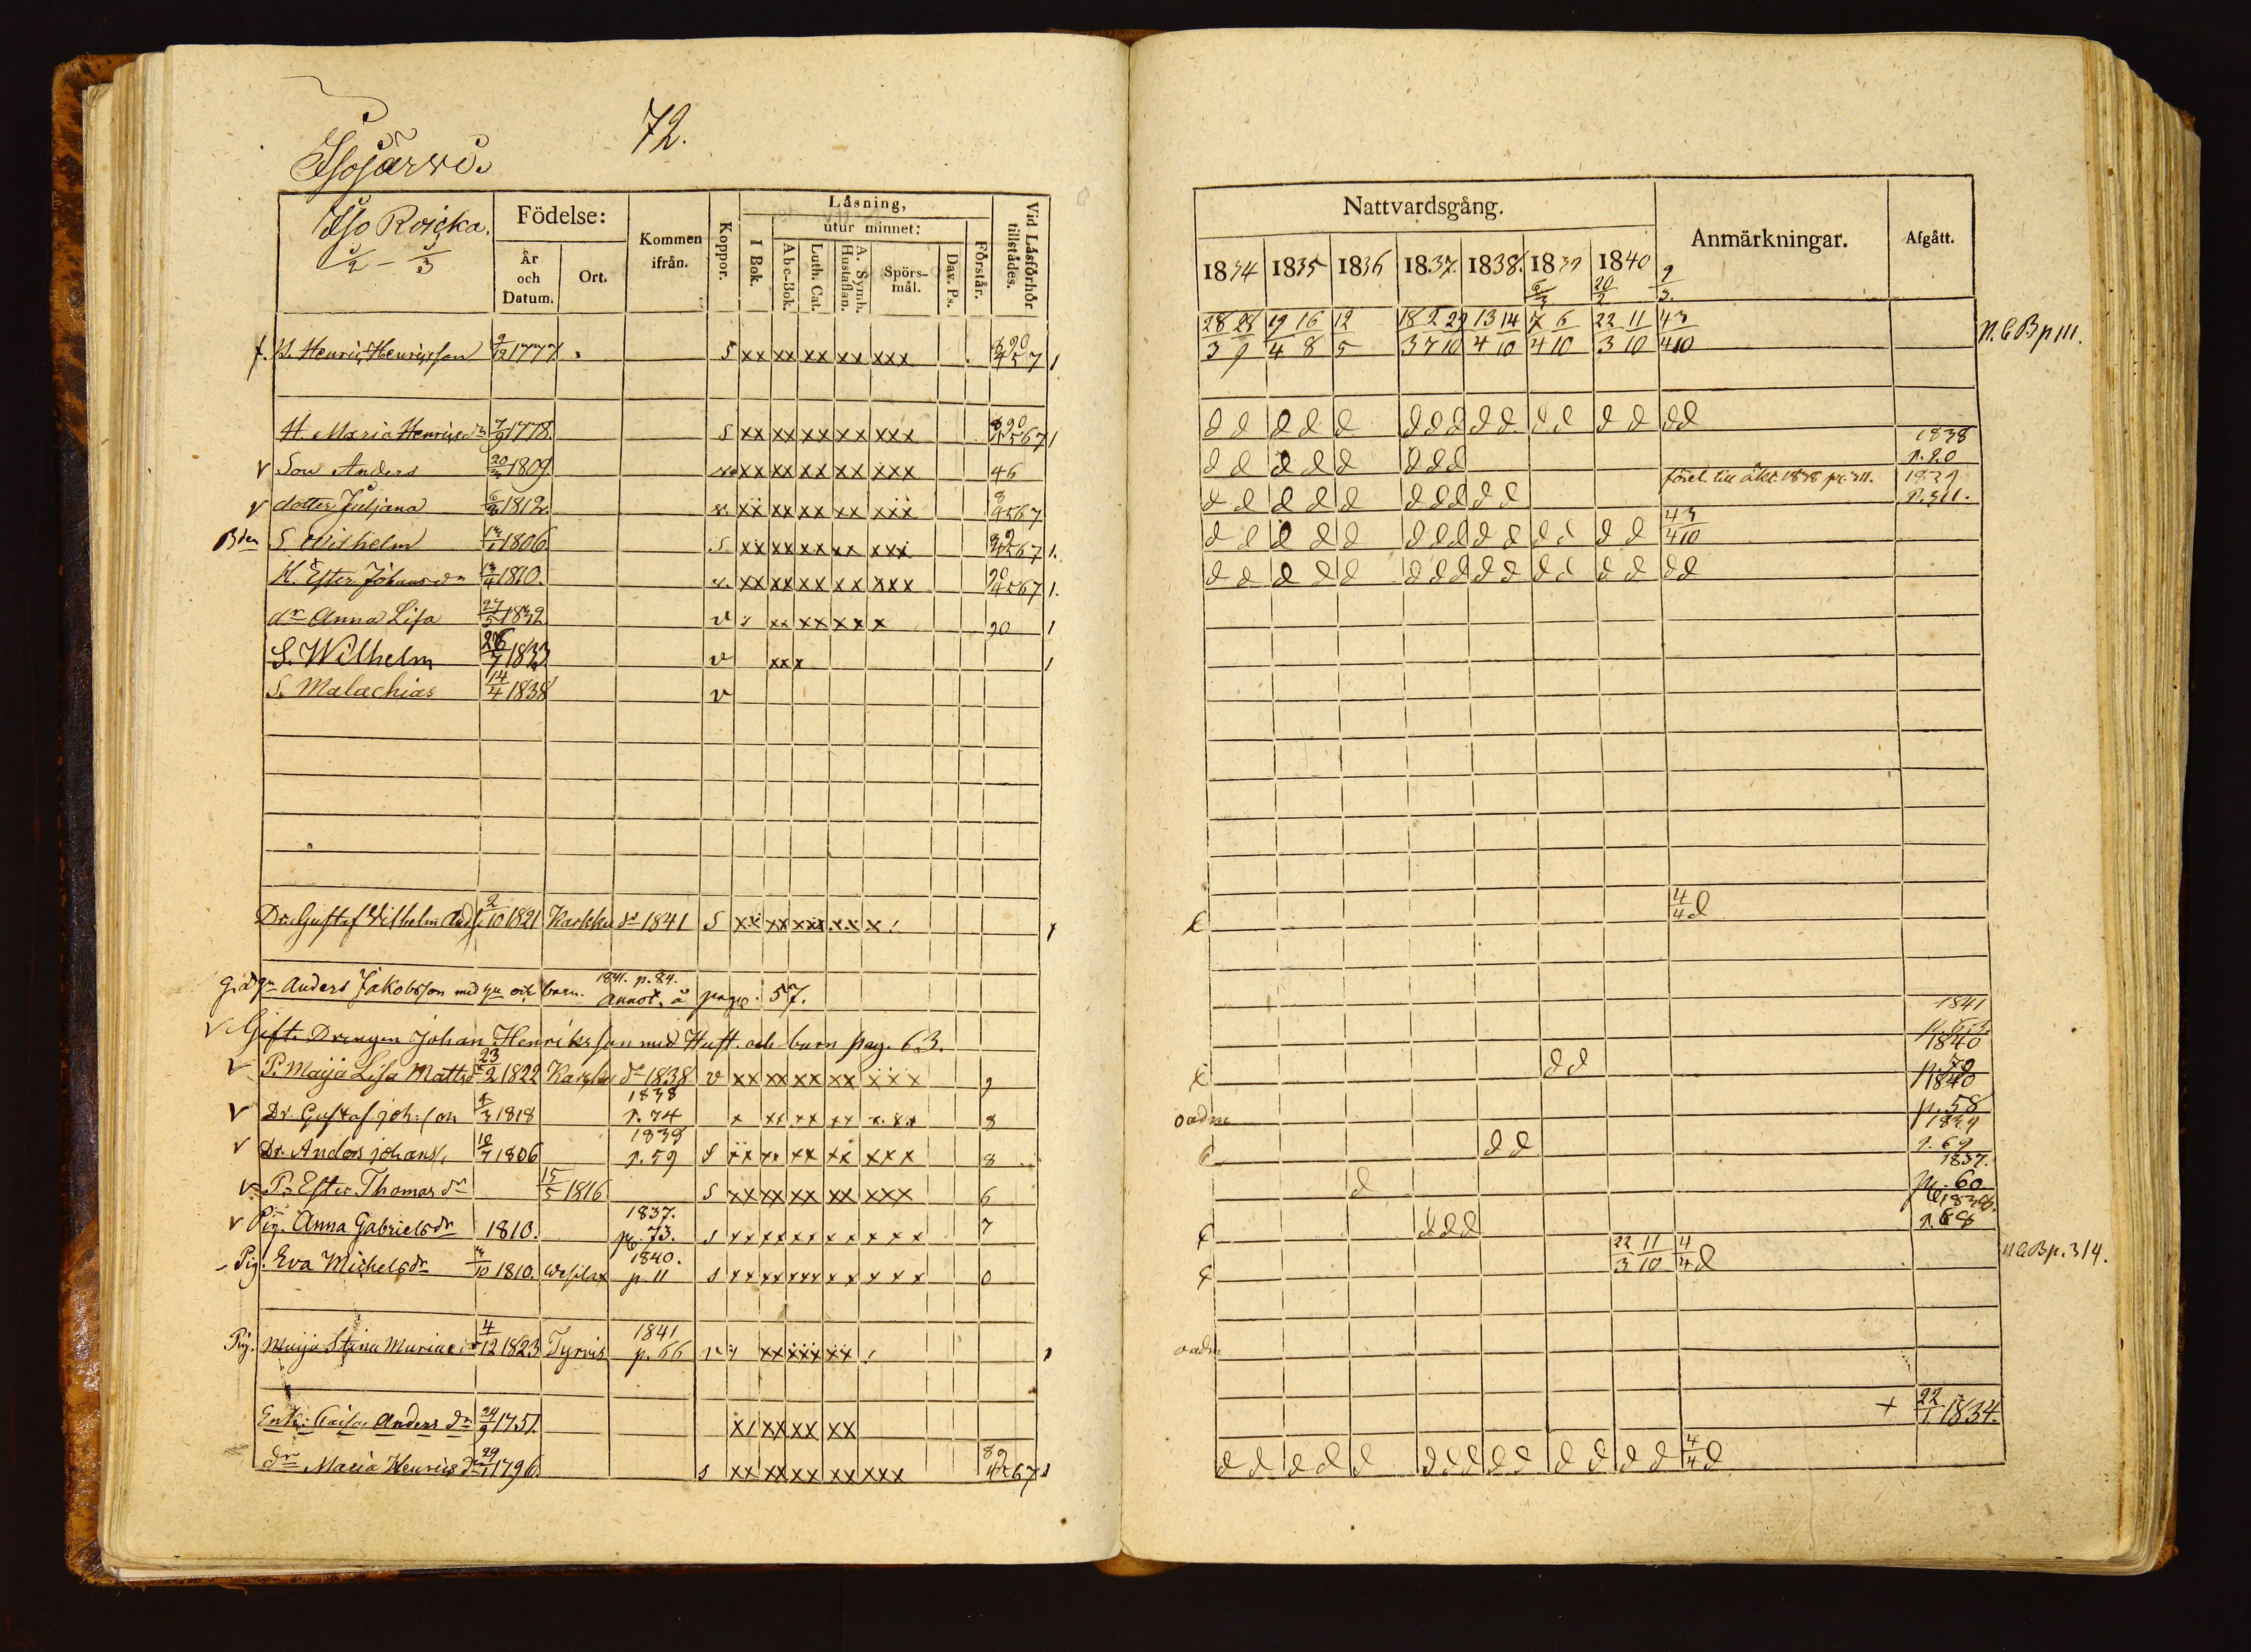 72.
Isojärvi.
Iso Roicka.
1/2 - 1/3
Födelse:
År och Datum.
Ort.
Kommen ifrån.
Koppor.
Läsning,
I Bok.
utur minnet:
Abc-Bok.
Luth. Cat.
A. Symb. Hustaflan.
Spörs-mål.
Dav. Ps.
Förstår.
Vid Läsförhör tillstådes.
Nattvardsgång.
1834 1835 1836 1837. 1838. 1839 1840
Anmärkningar.
Afgått.
B. Henric Henricsson 2/12 1777 S xx xx xx xx xxx 28/3 19/4 16/8 12/5 18/3 2/7 29/10 13/4 14/10 7/4 6/10 22/3 11/10 N.C.B p 111.
H. Maria Henricsdr 7/9 1778. S xx xx xx xx xxx d d d d d d d d d d d d d d d d
v Son Anders 20/3 1809. xx xx xx xx xxx 46 d d d d d d d d 1838 p. 20
v dotter Juljana 6/3 1812. xx xx xx xx xxx d d d d d d d d d d 1839 p. 311.
Bden S. Wilhelm 1806 S. xx xx xx xx xxx d d d d d d d d d d d d d d 4/4 3/10
H. Ester Johansdr 13/4 1810. xx xx xx xx xxx d d d d d d d d d d d d d d d d
dr Anna Lisa 27/5 1832 v xx xx xx x 90 1
S. Wilhelm 26/7 1833 v xxx 1
S. Malachias 14/4 1838 v
Dr. Gustaf Wilhelm Ands. 2/10 1821 Karkku dr 1841 S xx xx xxx xx x 4/4 d
G. dgn Anders Jakobsson med hu och barn. 1841. p. 84. Annot. å page. 57.
v Gift. Drengen Johan Henriksson med Hust. och barn pag. 63. 1841 p. 63.
v P. Maija Lisa Mattsdr 23/2 1822 dr 1838 v xx xx xx xx xxx 9 d d 1840 p. 79
v Dr. Gustaf joh:son 4/3 1818 1838 p. 74 x xx xx xx 8 oadm 1840 p. 58
v Dr. Anders johans. 10/7 1806 1838 p. 59 S xx xx xx xx xxx 8 d d 1839 p. 69
v P. Ester Thomasdr 15/5 1816 S xx xx xx xx xxx 6 d 1837. pg. 60
v Pig. Anna Gabrielsdr 1810. 1837. pg. 73. s xx xx xx xx xxx 7 d d d 1838. p. 68
Pig. Eva Michelsdr 1810. Wesilax 1840. p. 11 s xx xx xx xx xxx 0 22/3 11/10 4/4 d N.C.B p. 314.
Pig. Maija Stina Mariae dr 4/12 1823 Tyrvis 1841 p. 66 v xx xxx xx oadm
Enk: Caisa Andersdr 24/9 1751. xx xx xx xx + 22/1 1834.
dr Maria Henricsdr 29/1 1796. s xx xx xx xx xxx d d d d d d d d d d d d d d 4/4 d